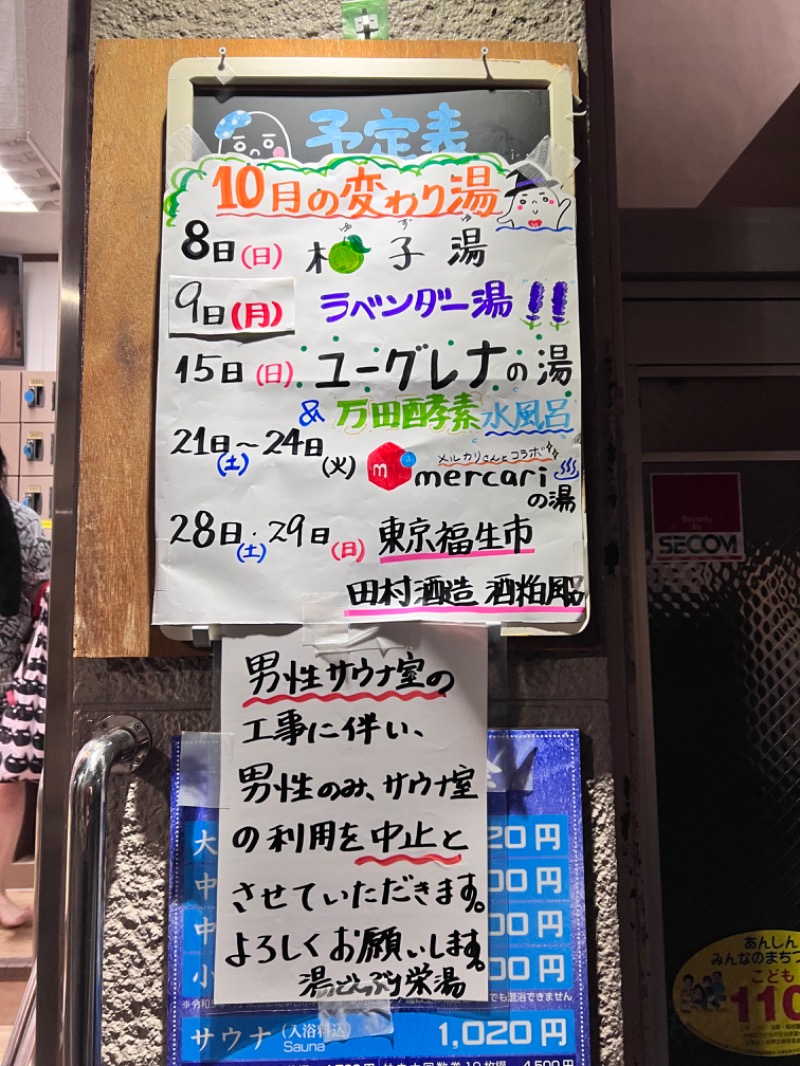 予定表
10月の変わり湯
8日(日) 柚子湯
ゆ ず ゆ
9日(月) ラベンダー湯!!
15日(日) ユーグレナの湯
& 万田酵素水風呂
21日(土)～24日(火) メルカリさんとコラボ
m mercari の湯
28日(土)・29日(日) 東京福生市
田村酒造 酒粕風呂
男性サウナ室の
工事に伴い、
男性のみ、サウナ室
の利用を中止と
させていただきます。
よろしくお願いします。
湯どんぶり栄湯
大 20円
中 00円
中 00円
小 00円
でも混浴できません
サウナ (入浴料込) 1,020円
Sauna
SECOM
あんしん
みんなのまち
こども
110